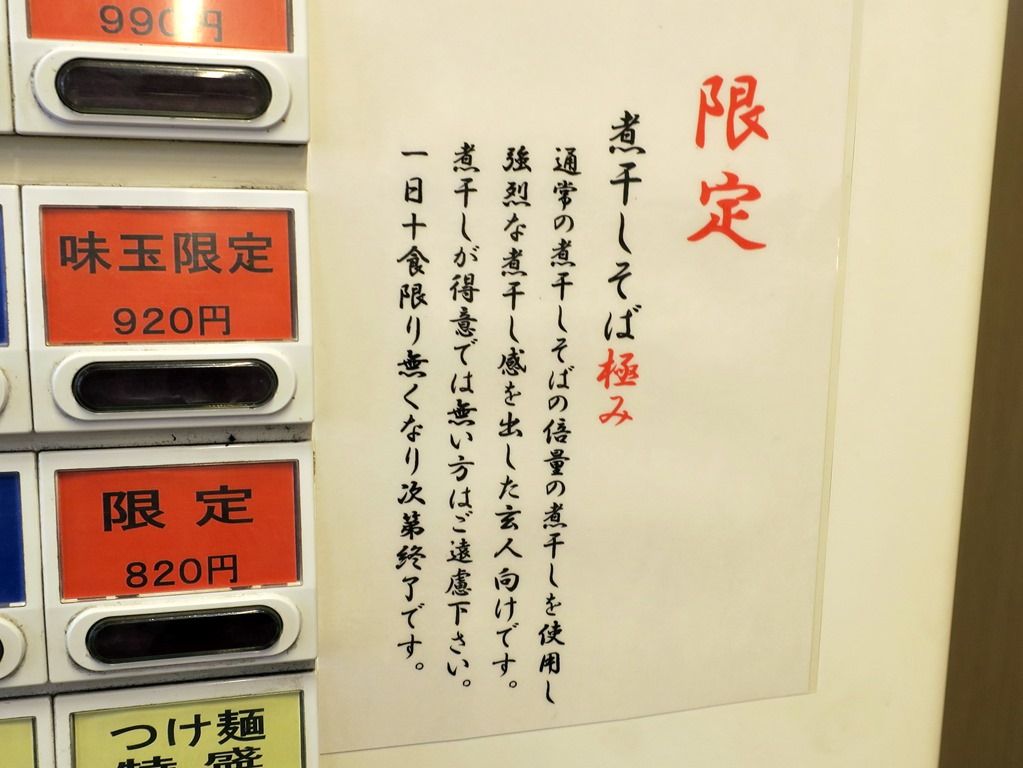 990円
味玉限定
920円
限定
820円
つけ麺
特盛
限定
煮干しそば極み
通常の煮干しそばの倍量の煮干しを使用し
強烈な煮干し感を出した玄人向けです。
煮干しが得意では無い方はご遠慮下さい。
一日十食限り無くなり次第終了です。